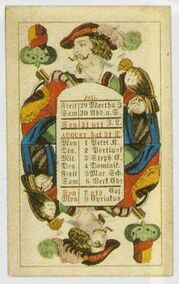 Juli.
Freit 29 Martha J.
Sam 30 Abd. u. S.
Son 31 n11 J. L.
AUGUST hat 31 T.
Mon 1 Petri K.
Din 2 Portiunk
Mit. 3 Steph E.
Don. 4 Dominik.
Freit 5 Mar. Sch.
Sam 6 Verk Chr
Son 7 n12 Caj
Mon 8 Cyriakus